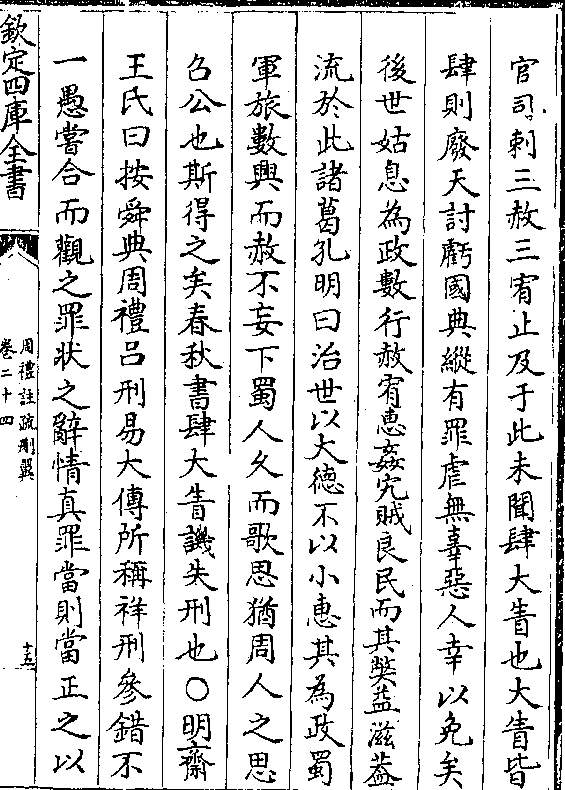 官司刺三赦三宥止及于此未聞肆大眚也大眚皆
肆則廢天討虧國典縱有罪虐無辜惡人幸以免矣
後世姑息為政數行赦宥惠姦宄賊良民而其獘益滋葢
流於此諸葛孔明曰治世以大德不以小惠其為政蜀
軍旅數興而赦不妄下蜀人久而歌思猶周人之思
召公也斯得之矣春秋書肆大眚譏失刑也○明齋
王氏曰按舜典周禮呂刑易大傳所稱祥刑參錯不
一愚嘗合而觀之罪狀之辭情真罪當則當正之以
欽定四庫全書
周禮註疏刪翼
卷二十四
十五